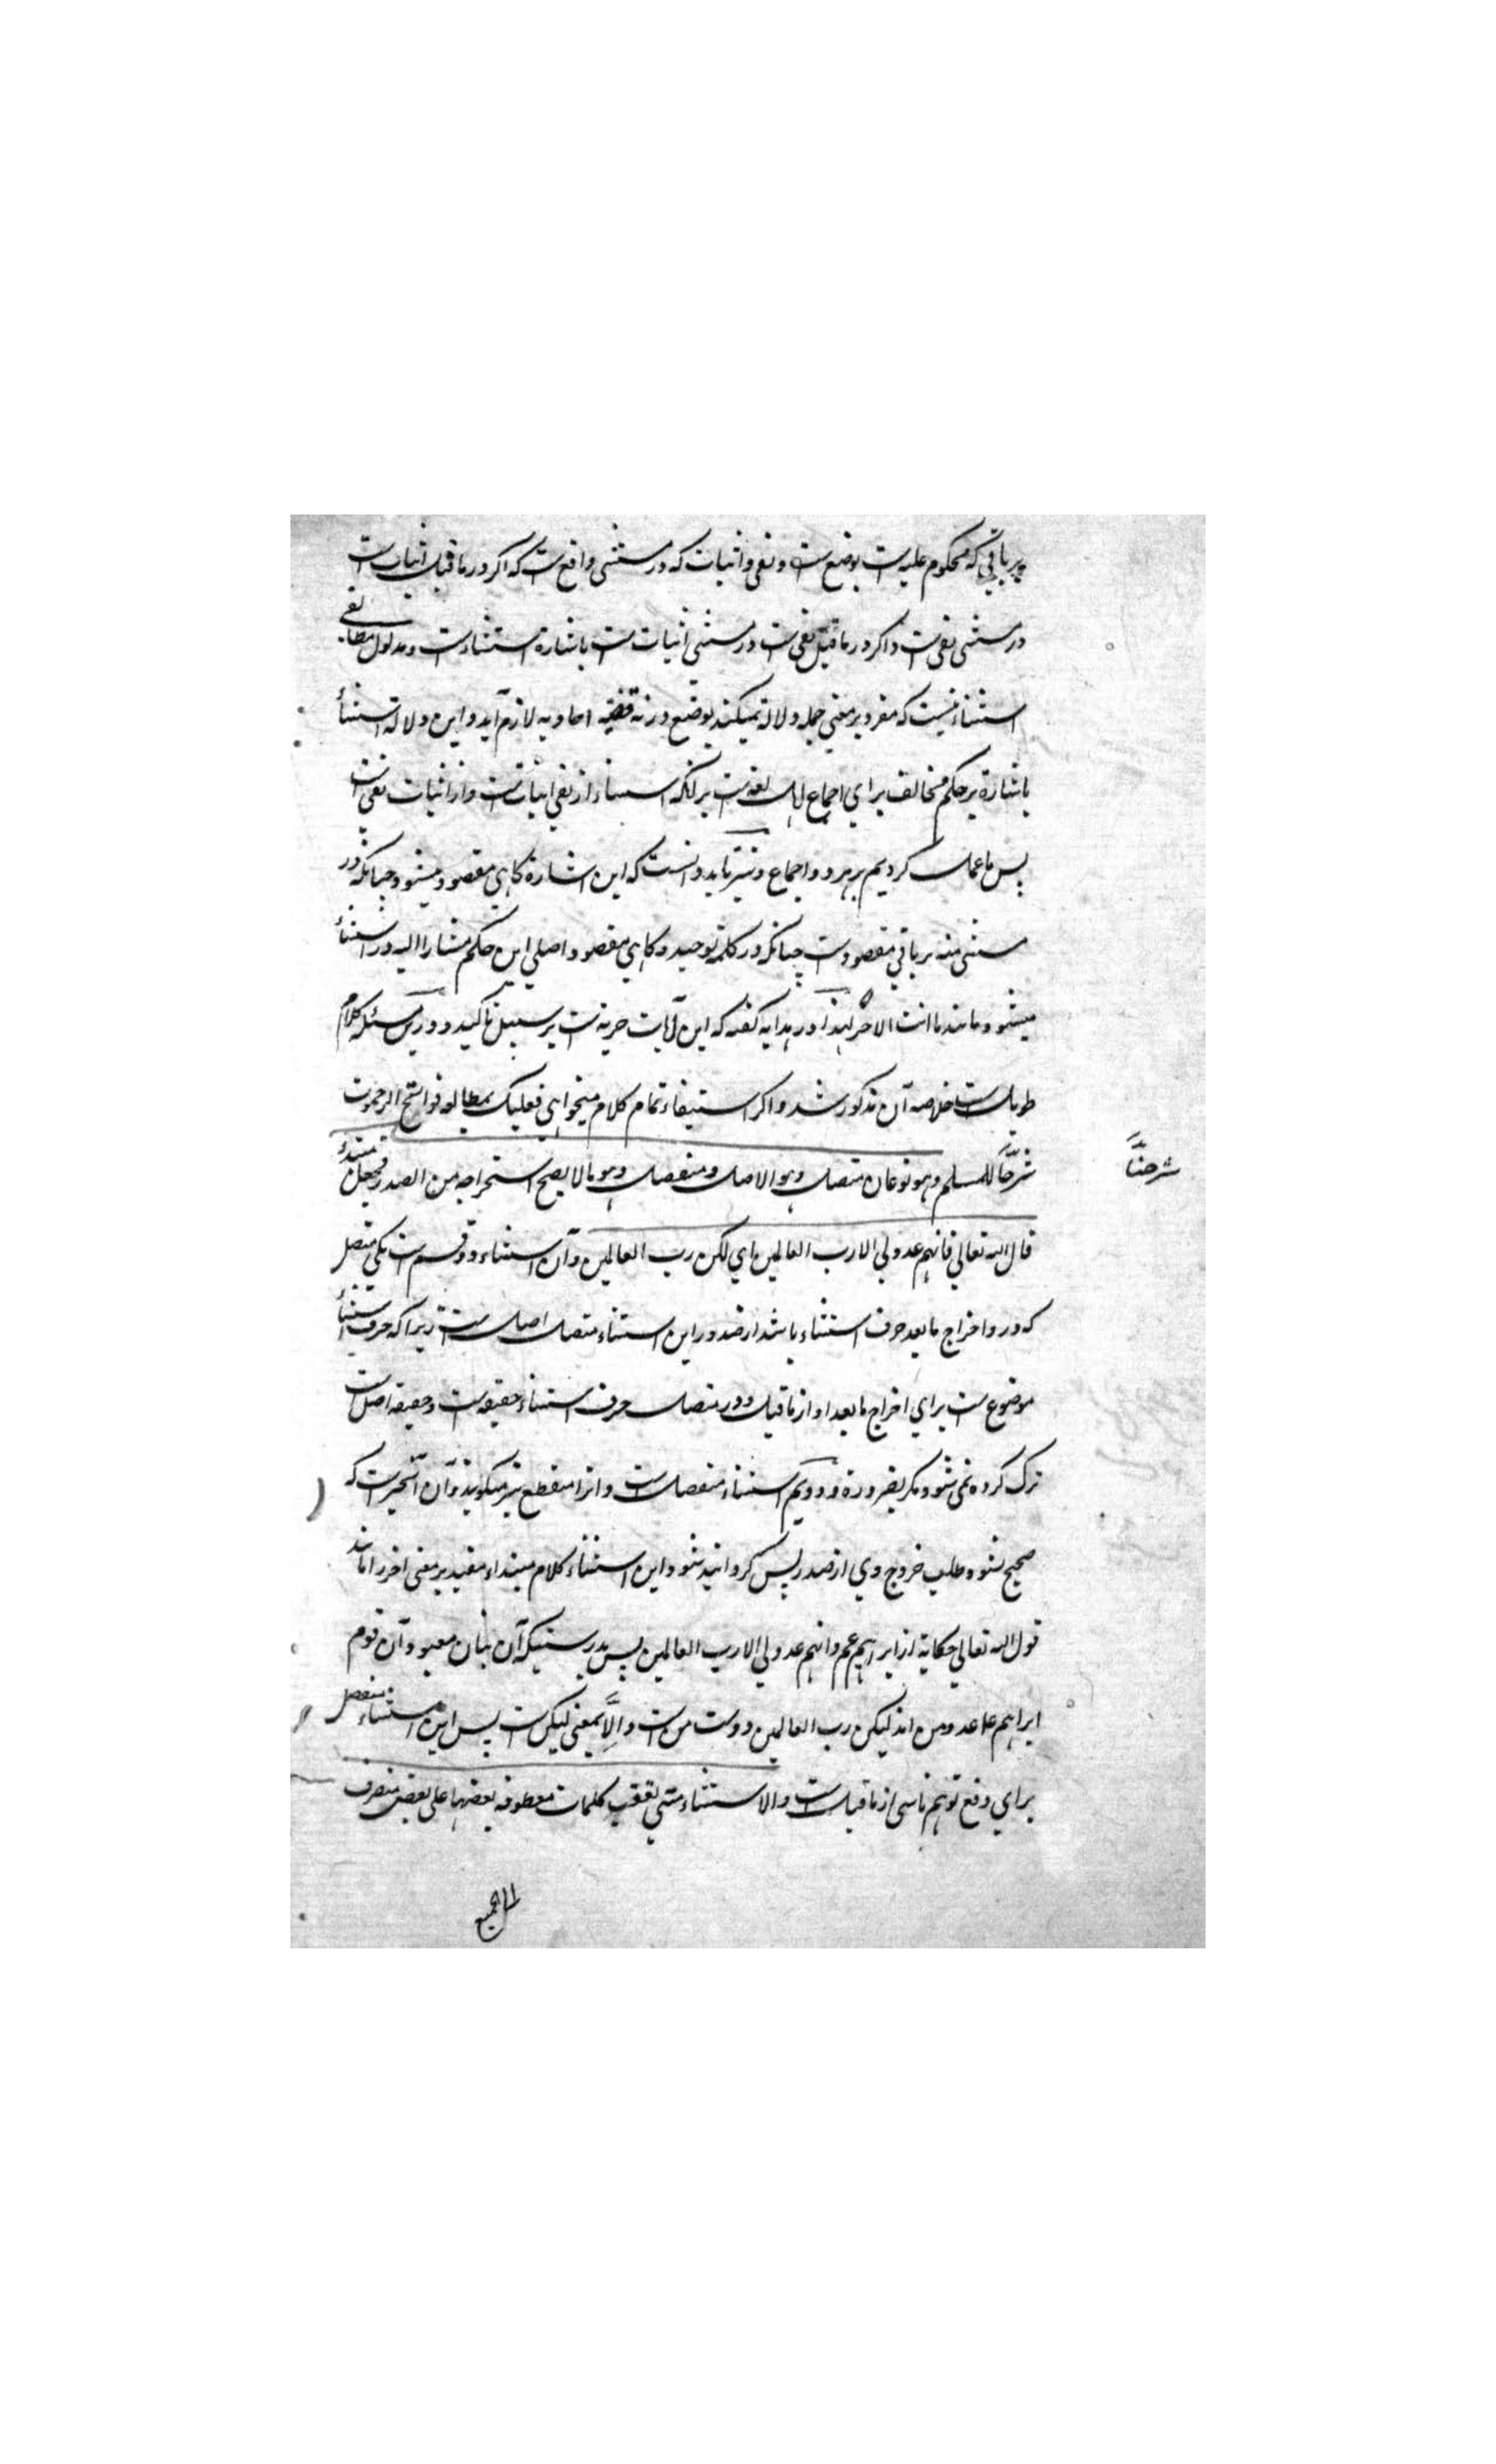 بر باقی که محکوم علیه است بوضع ست و نفی و اثبات که در مستثنی واقع ست که اکر در ماقبل اثبات است
در مستثنی نفی است و اکر در ماقبل نفی ست در مستثنی اثبات ست باشارة استثناء ست و مدلول مطابقی
استثناء نیست که مفرد بر معنی جمله دلالة نمیکند بوضع ورنه قضیه احادیه لازم آید و این دلالة استثناء
باشارة بر حکم مخالف برای اجماع اهل لغة ست بر انکه استثناء از نفی اثبات ست و از اثبات نفی است
پس ما عمل کردیم بر هر دو اجماع و نیز باید دانست که این اشارة کاهی مقصود میشود چنانکه در
مستثنی منه بر باقی مقصود ست چنانکه در کلمة توحید و کاهی مقصود اصلی این حکم مشار الیه در استثناء
میشود مانند ما انت الا حر لهذا در هدایه کفته که این اثبات حریة ست بر سبیل تاکید و درین مسئله کلام
طویل ست خلاصه آن مذکور شد و اکر استیفاء تمام کلام میخواهی فعلیک بمطالعه فواتح الرحموت
شرحنا
شرحًا للمسلم وهو نوعان متصل وهو الاصل ومنفصل وهو ما لا یصح استخراجه من الصدر فجعل مبتدءً
قال الله تعالی فانهم عدو لی الا رب العالمین ای لکن رب العالمین و آن استثناء دو قسم ست یکی متصل
که در و اخراج مابعد حرف استثناء باشد از صدر و این استثناء متصل اصل ست زیراکه حرف استثناء
موضوع ست برای اخراج مابعد او از ماقبل و در متصل حرف استثناء حقیقة ست و حقیقة اصل ست
ترک کرده نمی شود مکر بضرورة و دویم استثناء منفصل ست و انرا منقطع نیز میکویند و آن آنچیز ست که
صحیح نشود طلب خروج وی از صدر پس کردانیده شود این استثناء کلام مبتداء مفید بر معنی اخر را مانند
قول الله تعالی حکایة از ابراهیم عم فانهم عدو لی الا رب العالمین پس بدرستیکه آن بتان معبود آن قوم
ابراهیم عدو من اند لیکن رب العالمین دوست من ست و الّا بمعنی لیکن ست پس این استثناء منفصل
برای دفع توهم ناشی از ماقبل ست والاستثناء متی تعقب کلمات معطوفة بعضها علی بعض ینصرف
الی الجمیع